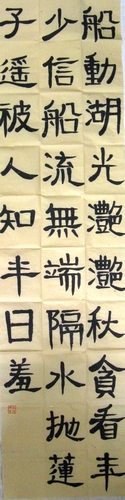 船動湖光灩灩秋貪看年
少信船流無端隔水拋蓮
子遙被人知半日羞